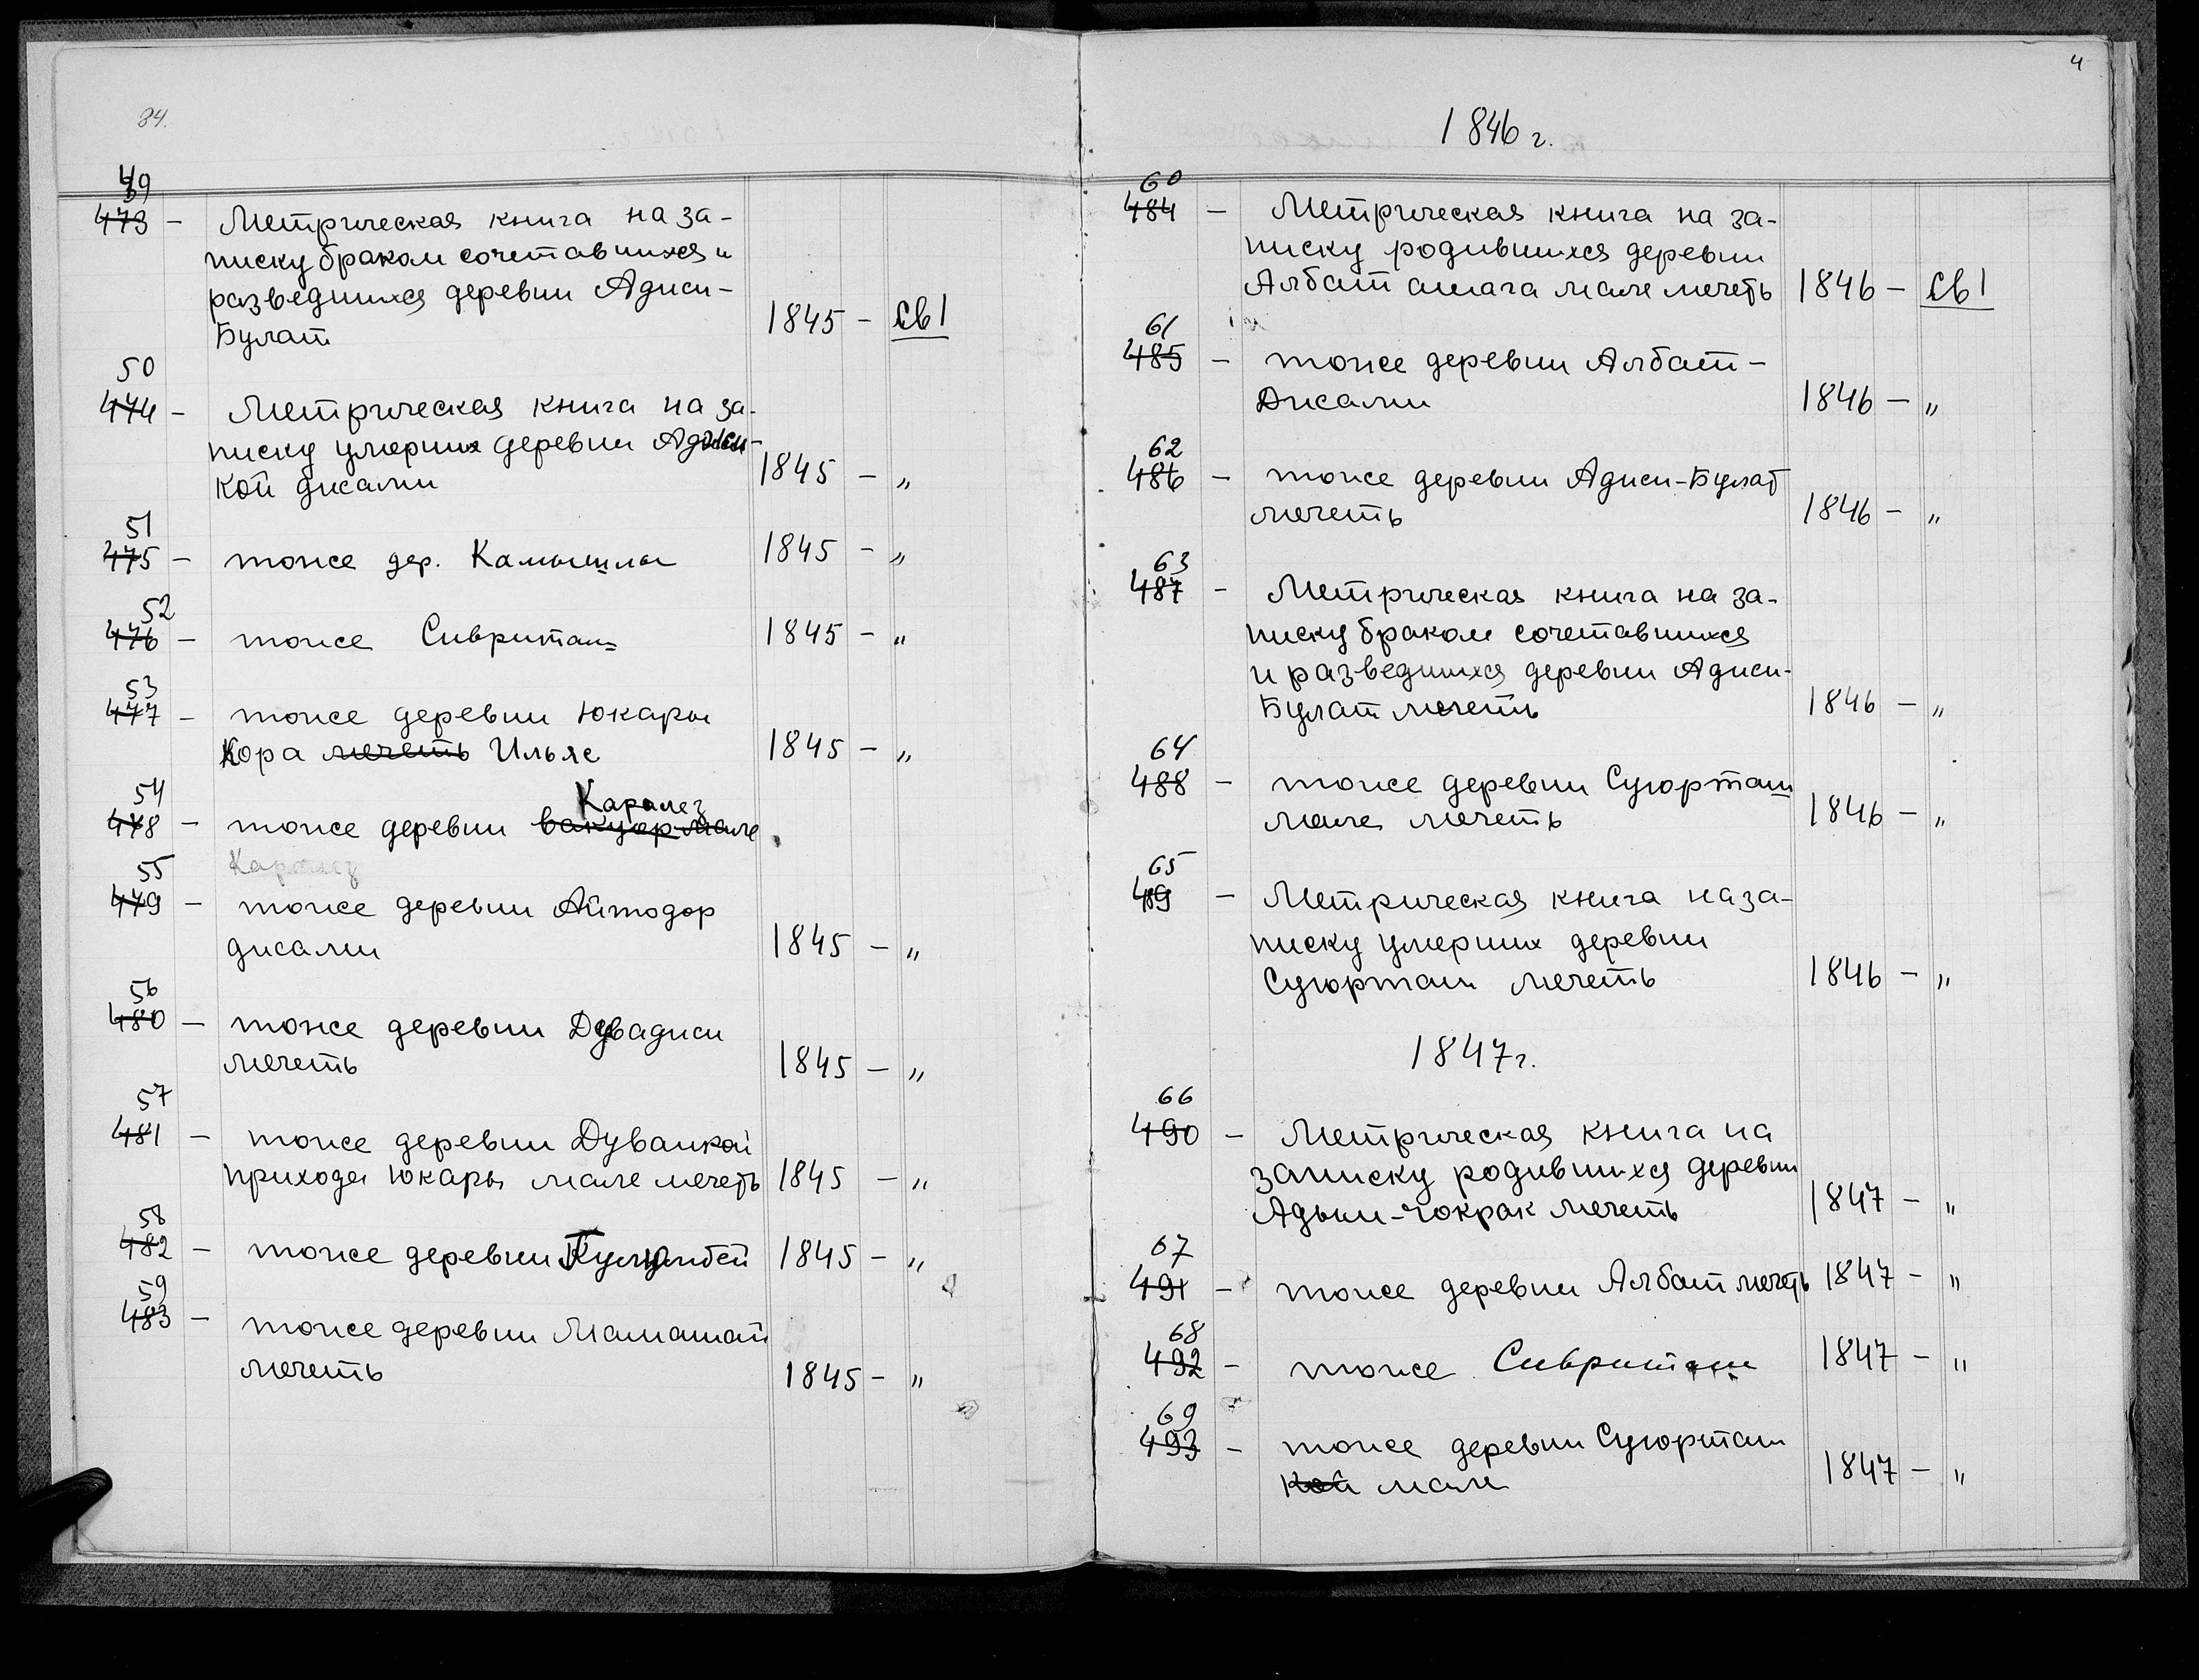 84.
49
473 – Метрическая книга на за-
писку браком сочетавшихся и
разведшихся деревни Аджи-
Булат 1845 – св 1
50
474 – Метрическая книга на за-
писку умерших деревни Аджи-
Кой джами 1845 – "
51
475 – тоже дер. Камышлы 1845 – "
52
476 – тоже Сивриташ 1845 – "
53
477 – тоже деревни Юкары
Кора мечеть Ильяс 1845 – "
54
Каралез
478 – тоже деревни
Каралез
55
479 – тоже деревни Айтодор
джами 1845 – "
56
480 – тоже деревни Дуваджи
мечеть 1845 – "
57
481 – тоже деревни Дуванкой
прихода Юкары мале мечеть 1845 – "
58
482 – тоже деревни 1845 – "
59
483 – тоже деревни Мамашай
мечеть 1845 – "
4
1846 г.
60
484 – Метрическая книга на за-
писку родившихся деревни
Албат ашага мале мечеть 1846 – св 1
61
485 – тоже деревни Албат-
Джами 1846 – "
62
486 – тоже деревни Аджи-Булат
мечеть 1846 – "
63
487 – Метрическая книга на за-
писку браком сочетавшихся
и разведшихся деревни Аджи-
Булат мечеть 1846 – "
64
488 – тоже деревни Суюрташ
мале мечеть 1846 – "
65
489 – Метрическая книга на за-
писку умерших деревни
Суюрташ мечеть 1846 – "
1847 г.
66
490 – Метрическая книга на
записку родившихся деревни
Адым-чокрак мечеть 1847 – "
67
491 – тоже деревни Албат мечеть 1847 – "
68
492 – тоже Сивриташ 1847 – "
69
493 – тоже деревни Суюрташ
Кой мале 1847 – "